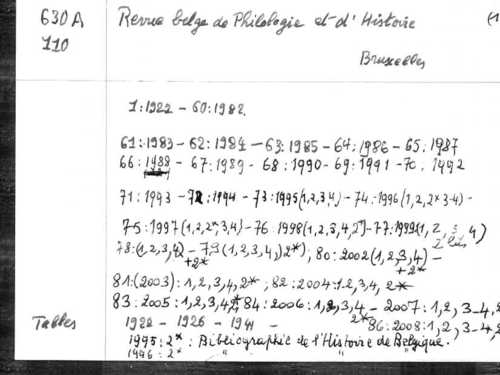 630A
110
Revue belge de Philologie et d'Histoire
(1
Bruxelles
1:1922 - 60:1982.
61:1983 - 62:1984 - 63:1985 - 64:1986 - 65:1987
66:1988 - 67:1989 - 68:1990 - 69:1991 - 70:1992
71:1993 - 72:1994 - 73:1995(1,2,3,4) - 74:1996(1,2,2*3-4) -
75:1997(1,2,2*,3,4) - 76:1998(1,2,3,4,2*) - 77:1999(1,2,3,4)
78:(1,2,3,4) - 79(1,2,3,4,)2*), 80:2002(1,2,3,4) -
+2* +2*
81:(2003):1,2,3,4,2*, 82:2004:1,2,3,4,2*
83:2005:1,2,3,4,2* 84:2006:1,2,3,4 - 2007:1,2,3-4,2
2* 86:2008:1,2,3-4,2
Tables
1922 - 1926 - 1941 -
1995:2*: Bibliographie de l'Histoire de Belgique.
1996:2* " " "